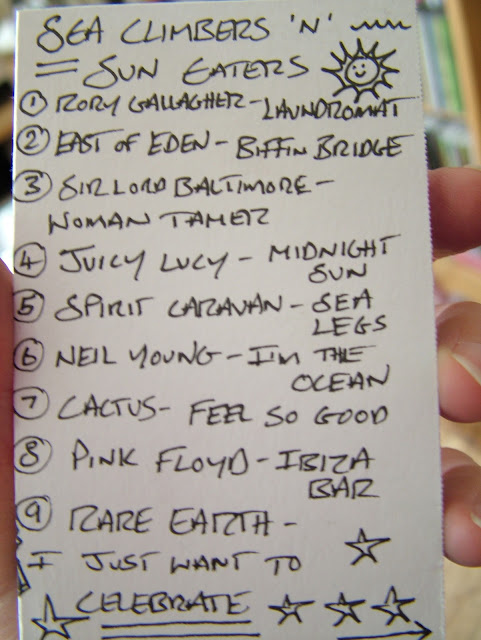 SEA CLIMBERS 'N'
SUN EATERS
① RORY GALLAGHER - LAUNDROMAT
② EAST OF EDEN - BIFFIN BRIDGE
③ SIR LORD BALTIMORE -
WOMAN TAMER
④ JUICY LUCY - MIDNIGHT
SUN
⑤ SPIRIT CARAVAN - SEA
LEGS
⑥ NEIL YOUNG - I'M THE
OCEAN
⑦ CACTUS - FEEL SO GOOD
⑧ PINK FLOYD - IBIZA
BAR
⑨ RARE EARTH -
I JUST WANT TO
CELEBRATE